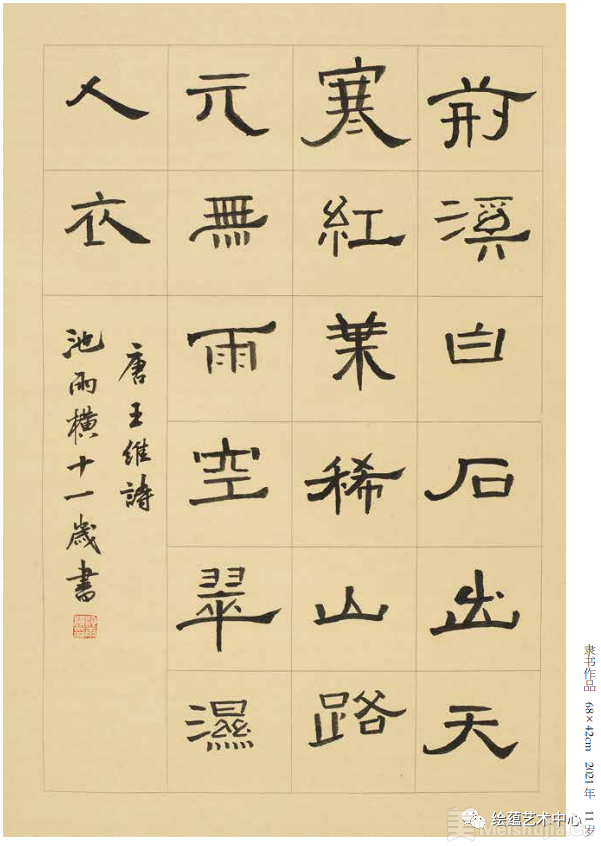 荊溪白石出天
寒紅葉稀山路
元無雨空翠濕
人衣
唐王維詩
池雨橫十一歲書
隶书作品 68×42cm 2021年 11岁
绘蕴艺术中心